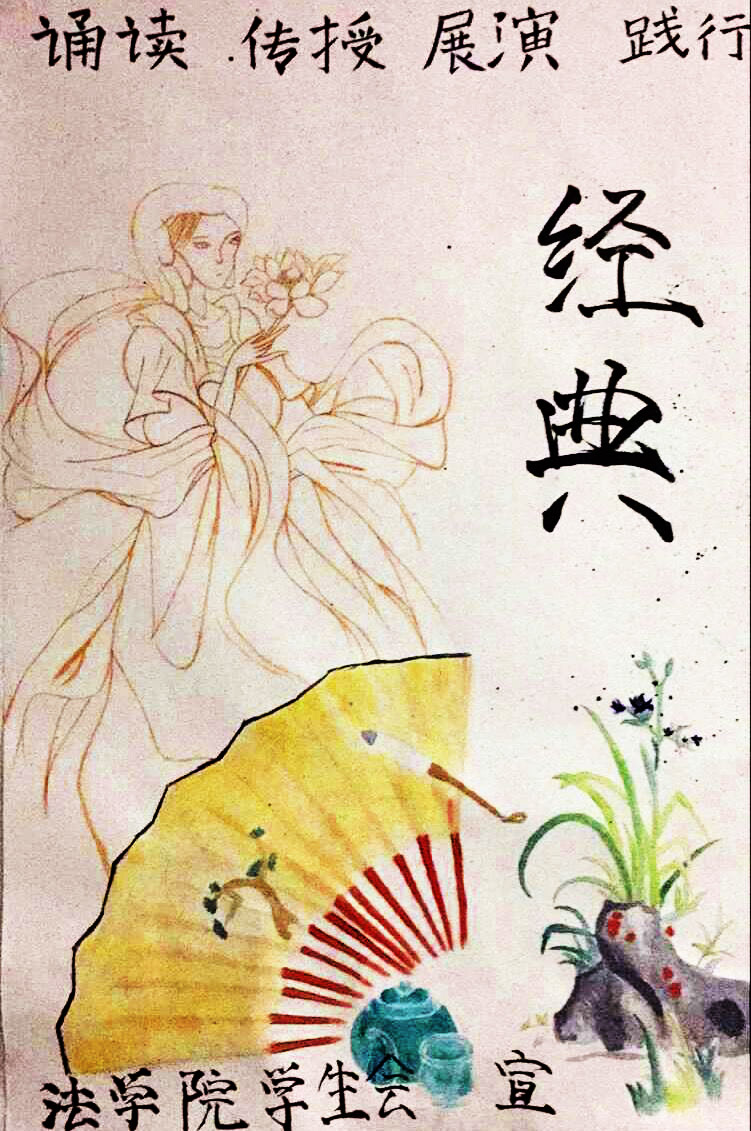 诵读 传授 展演 践行
经典
法学院学生会 宣